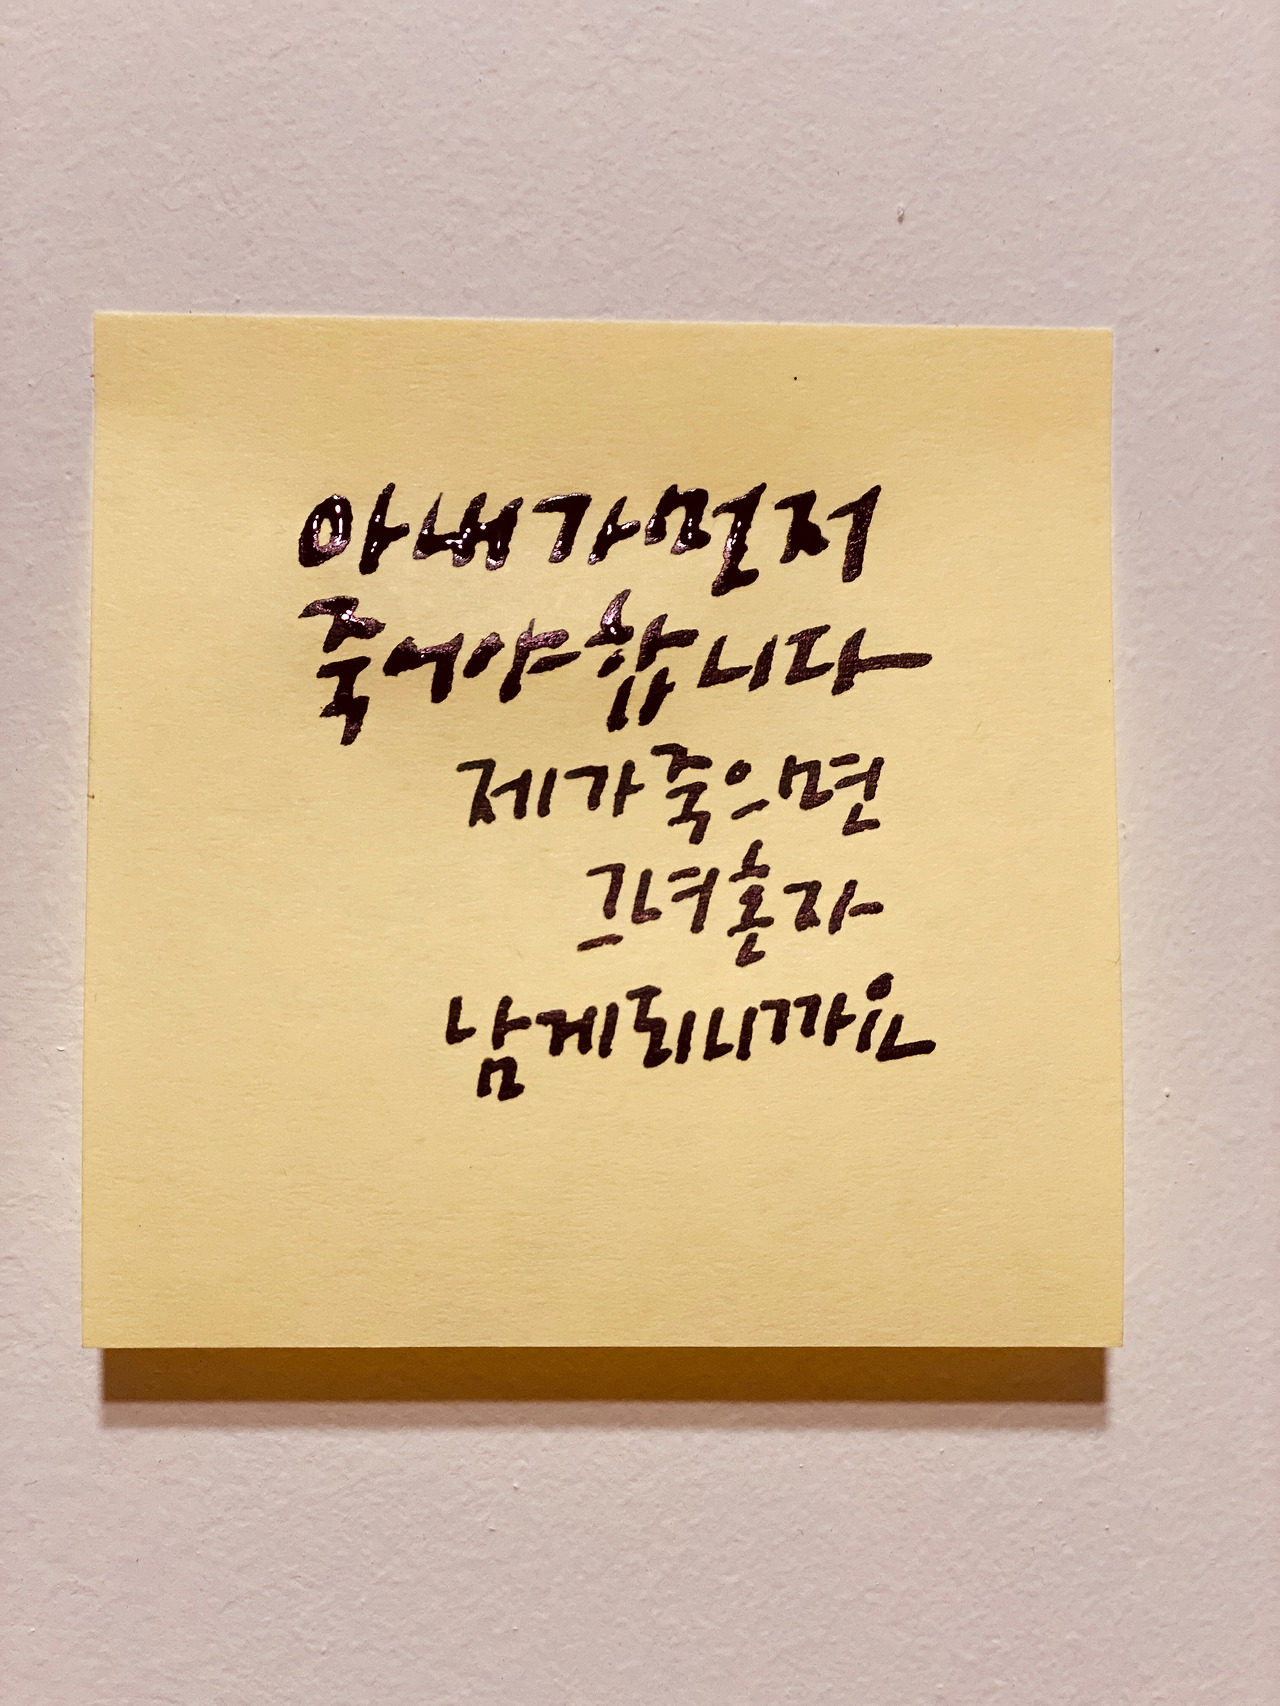 아내가 먼저
죽어야 합니다
제가 죽으면
그녀 혼자
남게 되니까요